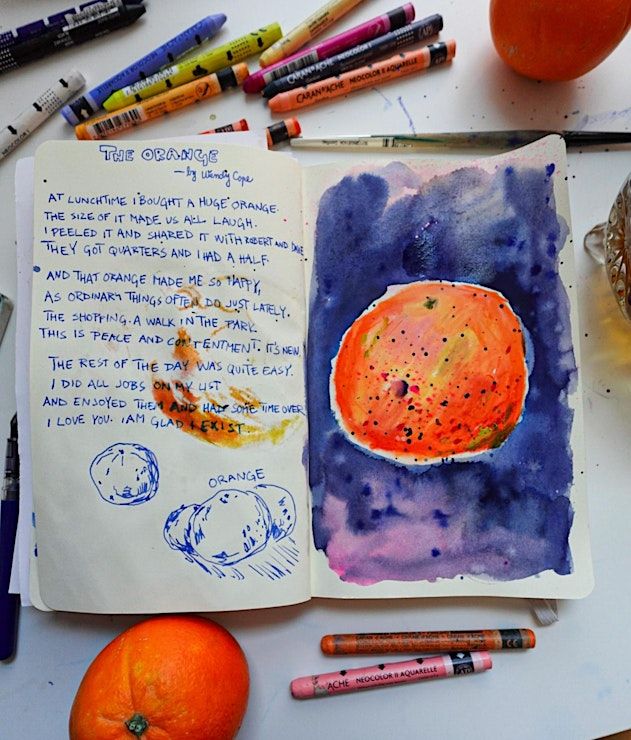 CARAN D'ACHE NEOCOLOR II AQUARELLE
THE ORANGE
— by Wendy Cope
AT LUNCHTIME I BOUGHT A HUGE ORANGE.
THE SIZE OF IT MADE US ALL LAUGH.
I PEELED IT AND SHARED IT WITH ROBERT AND DAVE
THEY GOT QUARTERS AND I HAD A HALF.
AND THAT ORANGE MADE ME SO HAPPY,
AS ORDINARY THINGS OFTEN DO JUST LATELY.
THE SHOPPING. A WALK IN THE PARK.
THIS IS PEACE AND CONTENTMENT. IT'S NEW.
THE REST OF THE DAY WAS QUITE EASY.
I DID ALL JOBS ON MY LIST
AND ENJOYED THEM AND HAD SOME TIME OVER
I LOVE YOU. I AM GLAD I EXIST.
ORANGE
ACHE NEOCOLOR II AQUARELLE